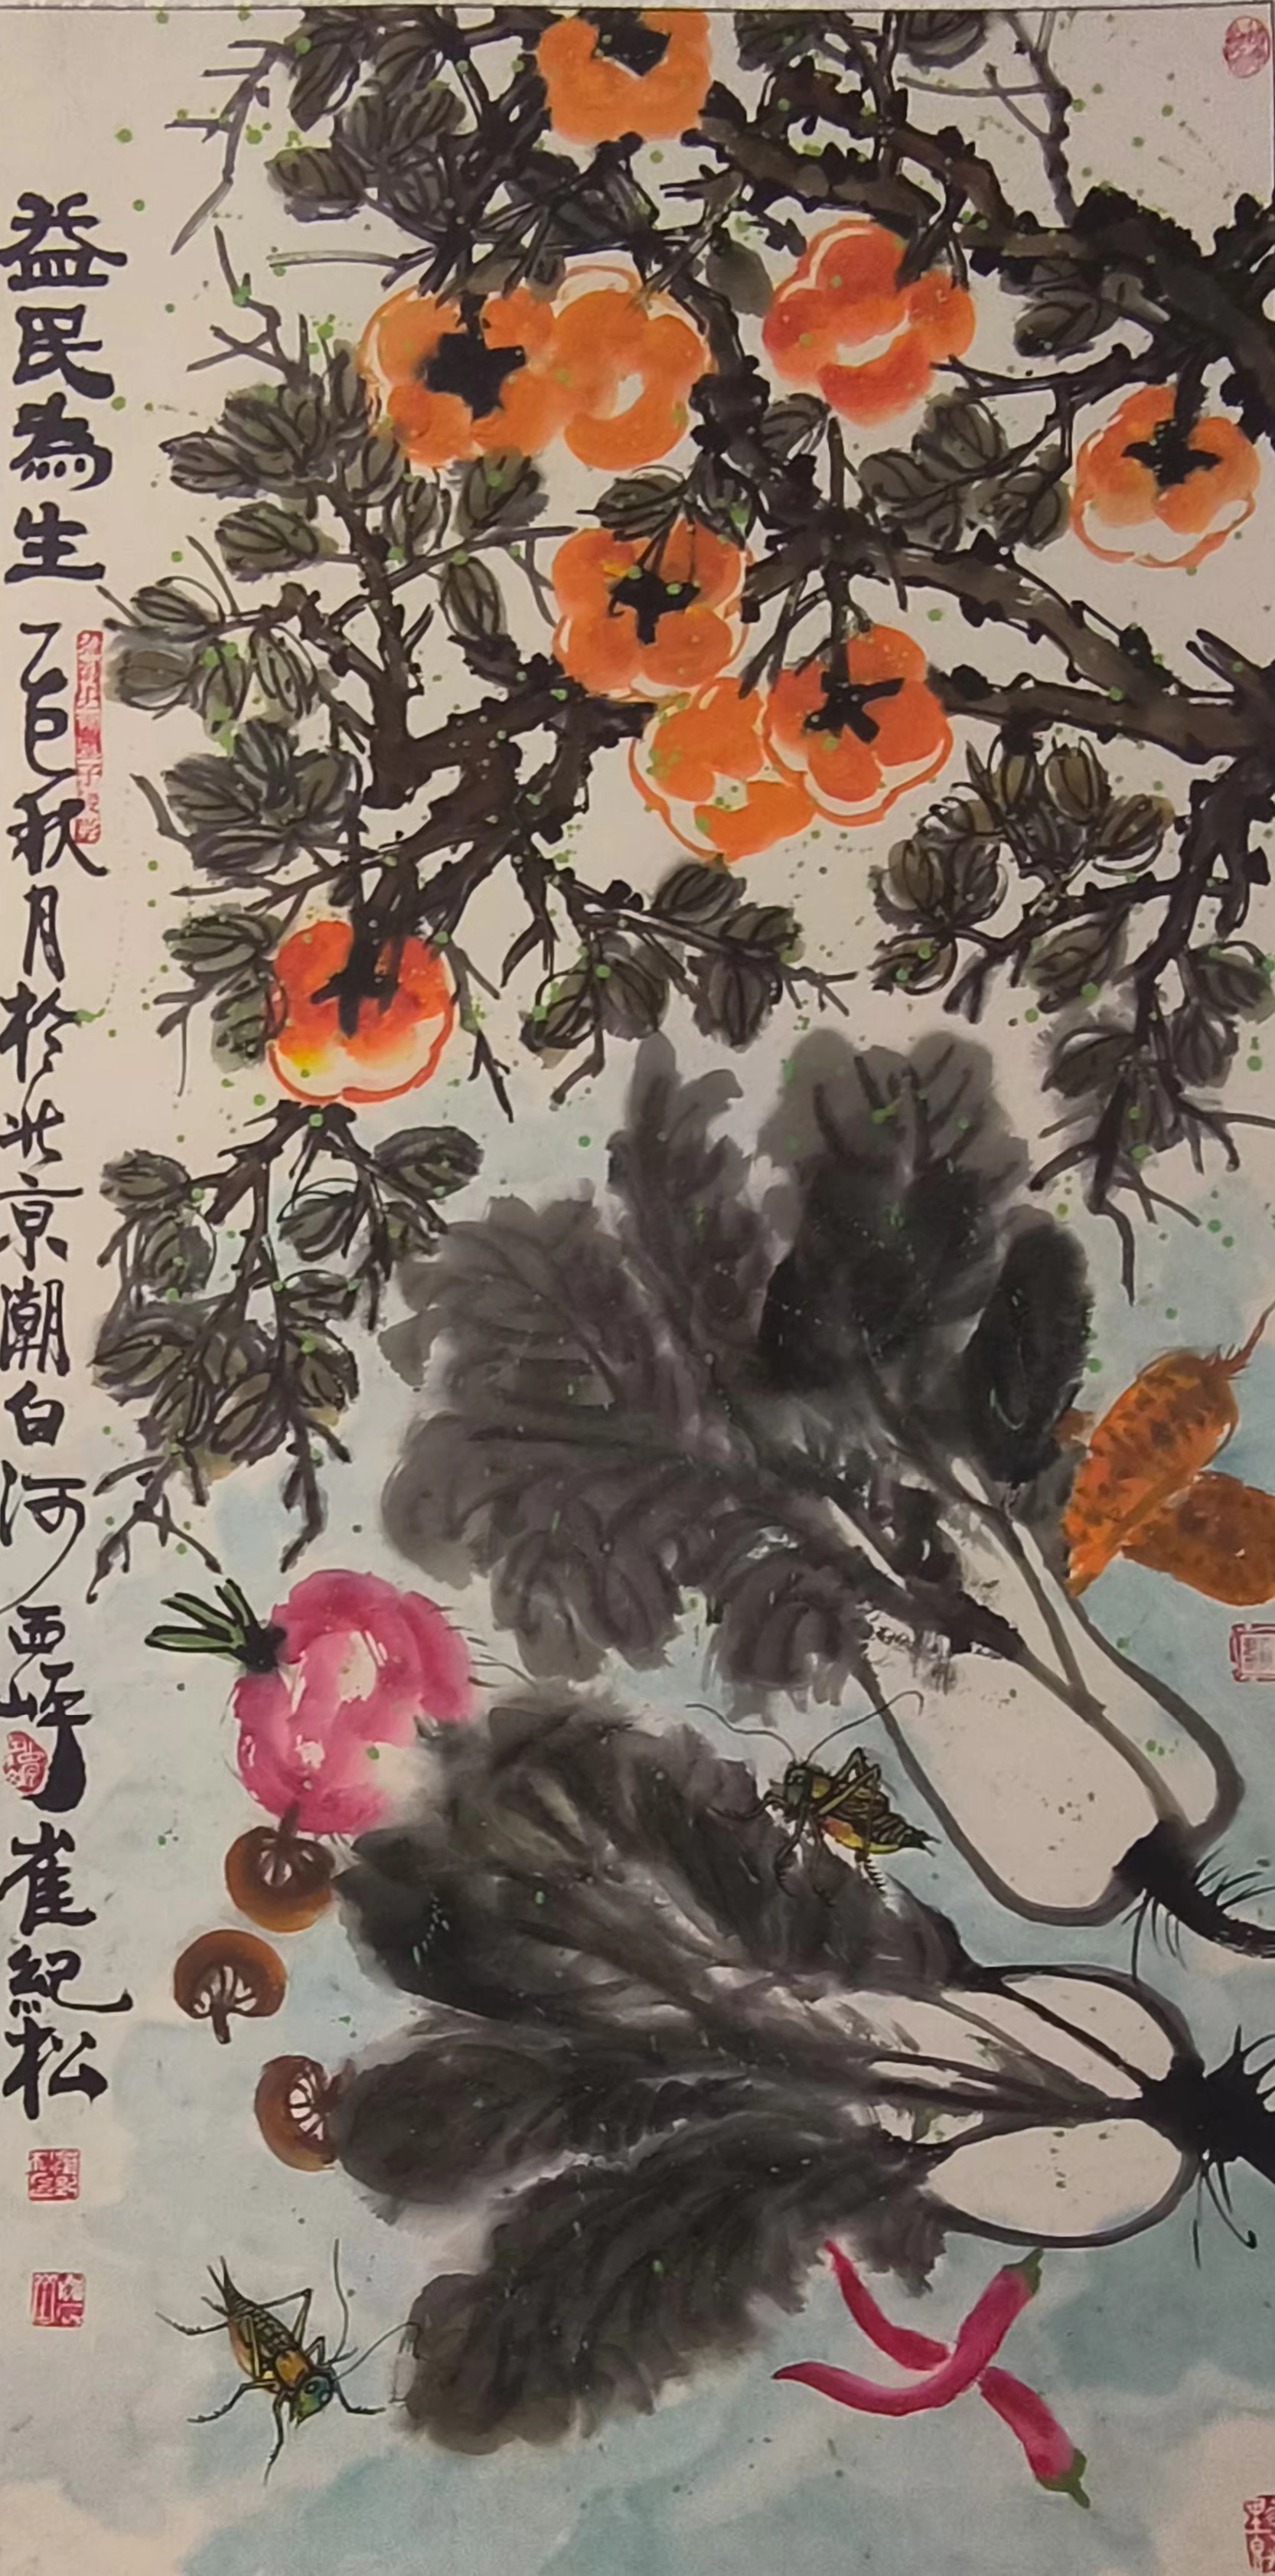 益民為生乙巳秋月於北京潮白河西岸崔紀松